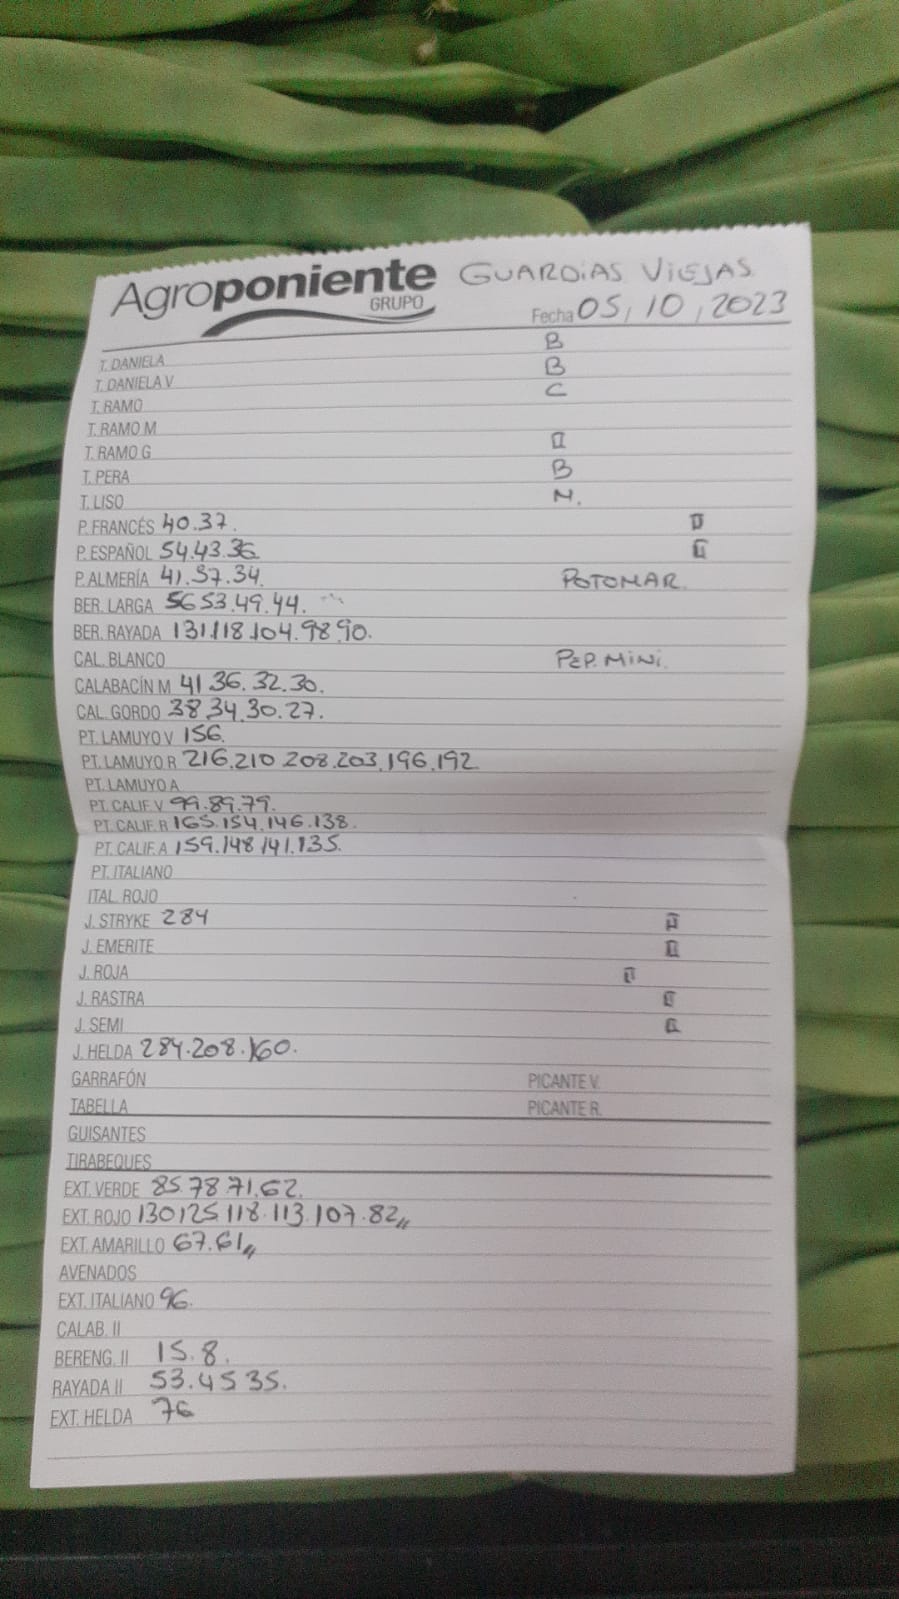 Agroponiente GUARDIAS VIEJAS
GRUPO
Fecha 05, 10, 2023
T. DANIELA B
T. DANELA V B
T. RAMO C
T. RAMO M
T. RAMO G II
T. PERA B
T. LISO M.
P. FRANCÉS 40.37. II
P. ESPAÑOL 54.43.36. II
P. ALMERÍA 41.37.34. POTOMAR.
BER. LARGA 56 53.49.44.
BER. RAYADA 131.118.104.98.90.
CAL. BLANCO PEP. MINI.
CALABACÍN M 41 36.32.30.
CAL. GORDO 38 34.30.27.
PT. LAMUYO V 156.
PT. LAMUYO R 216.210.208.203.196.192
PT. LAMUYO A
PT. CALIF. V 99.89.79.
PT. CALIF. R 165.154.146.138.
PT. CALIF. A 159.148.141.135.
PT. ITALIANO
ITAL. ROJO
J. STRYKE 284 II
J. EMERITE II
J. ROJA II
J. RASTRA II
J. SEMI II
J. HELDA 284.208.160.
GARRAFÓN PICANTE V.
TABELLA PICANTE R.
GUISANTES
TIRABEQUES
EXT. VERDE 85.78.71.62.
EXT. ROJO 130.125.118.113.107.82,,
EXT. AMARILLO 67.61,,
AVENADOS
EXT. ITALIANO 96.
CALAB. II
BERENG. II 15.8.
RAYADA II 53.45 35.
EXT. HELDA 76